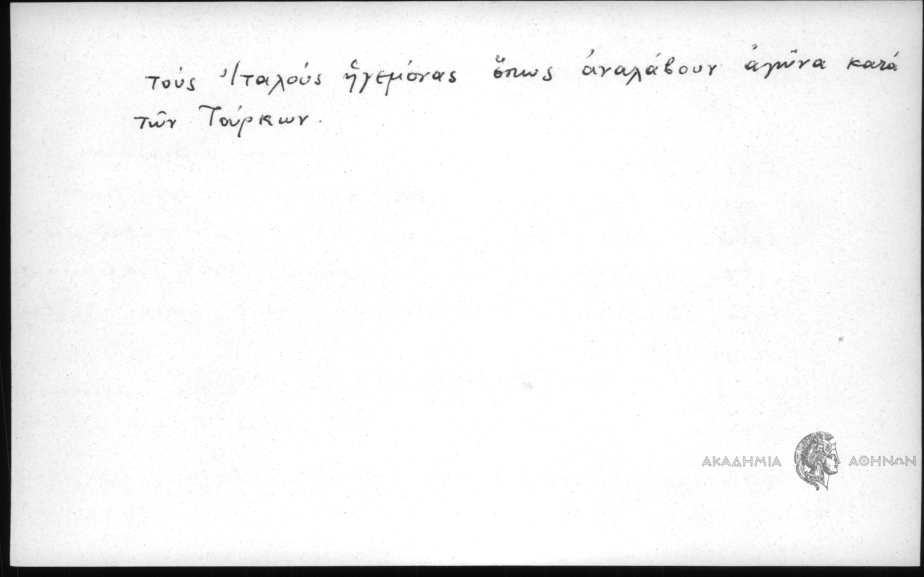 τούς Ἰταλούς ἡγεμόνας ὅπως ἀναλάβουν ἀγῶνα κατά
τῶν Τούρκων.
ΑΚΑΔΗΜΙΑ ΑΘΗΝΩΝ